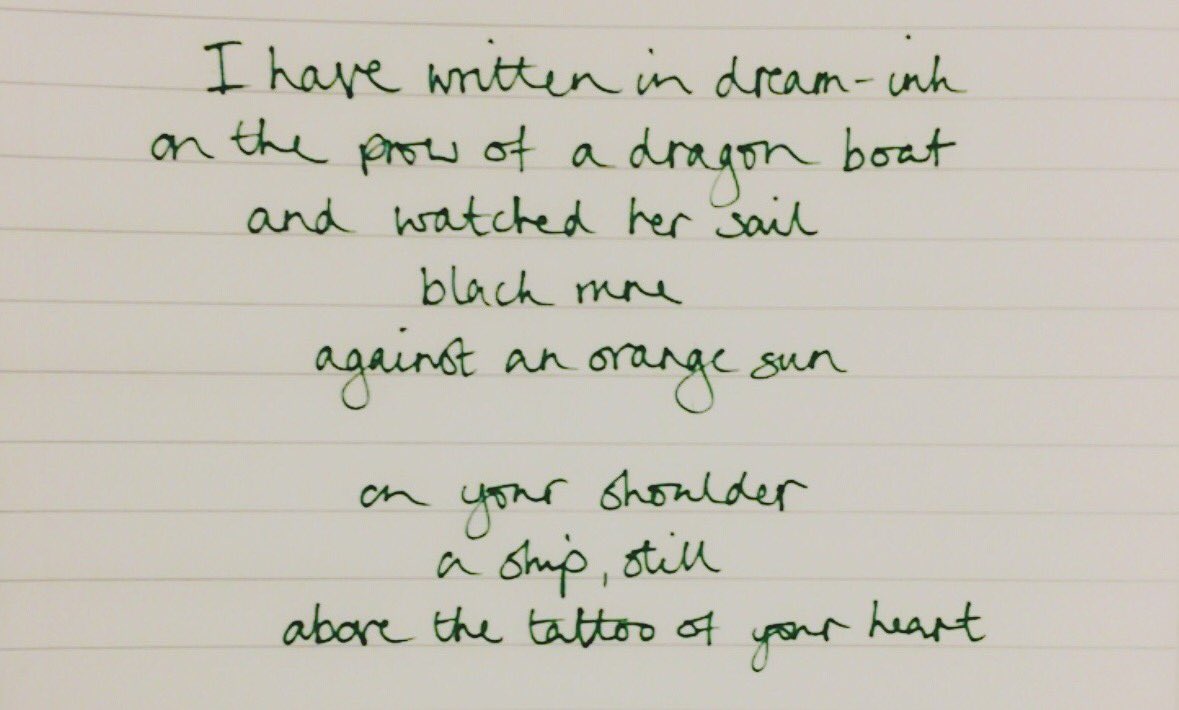 I have written in dream-ink
on the prow of a dragon boat
and watched her sail
black rune
against an orange sun
on your shoulder
a ship, still
above the tattoo of your heart